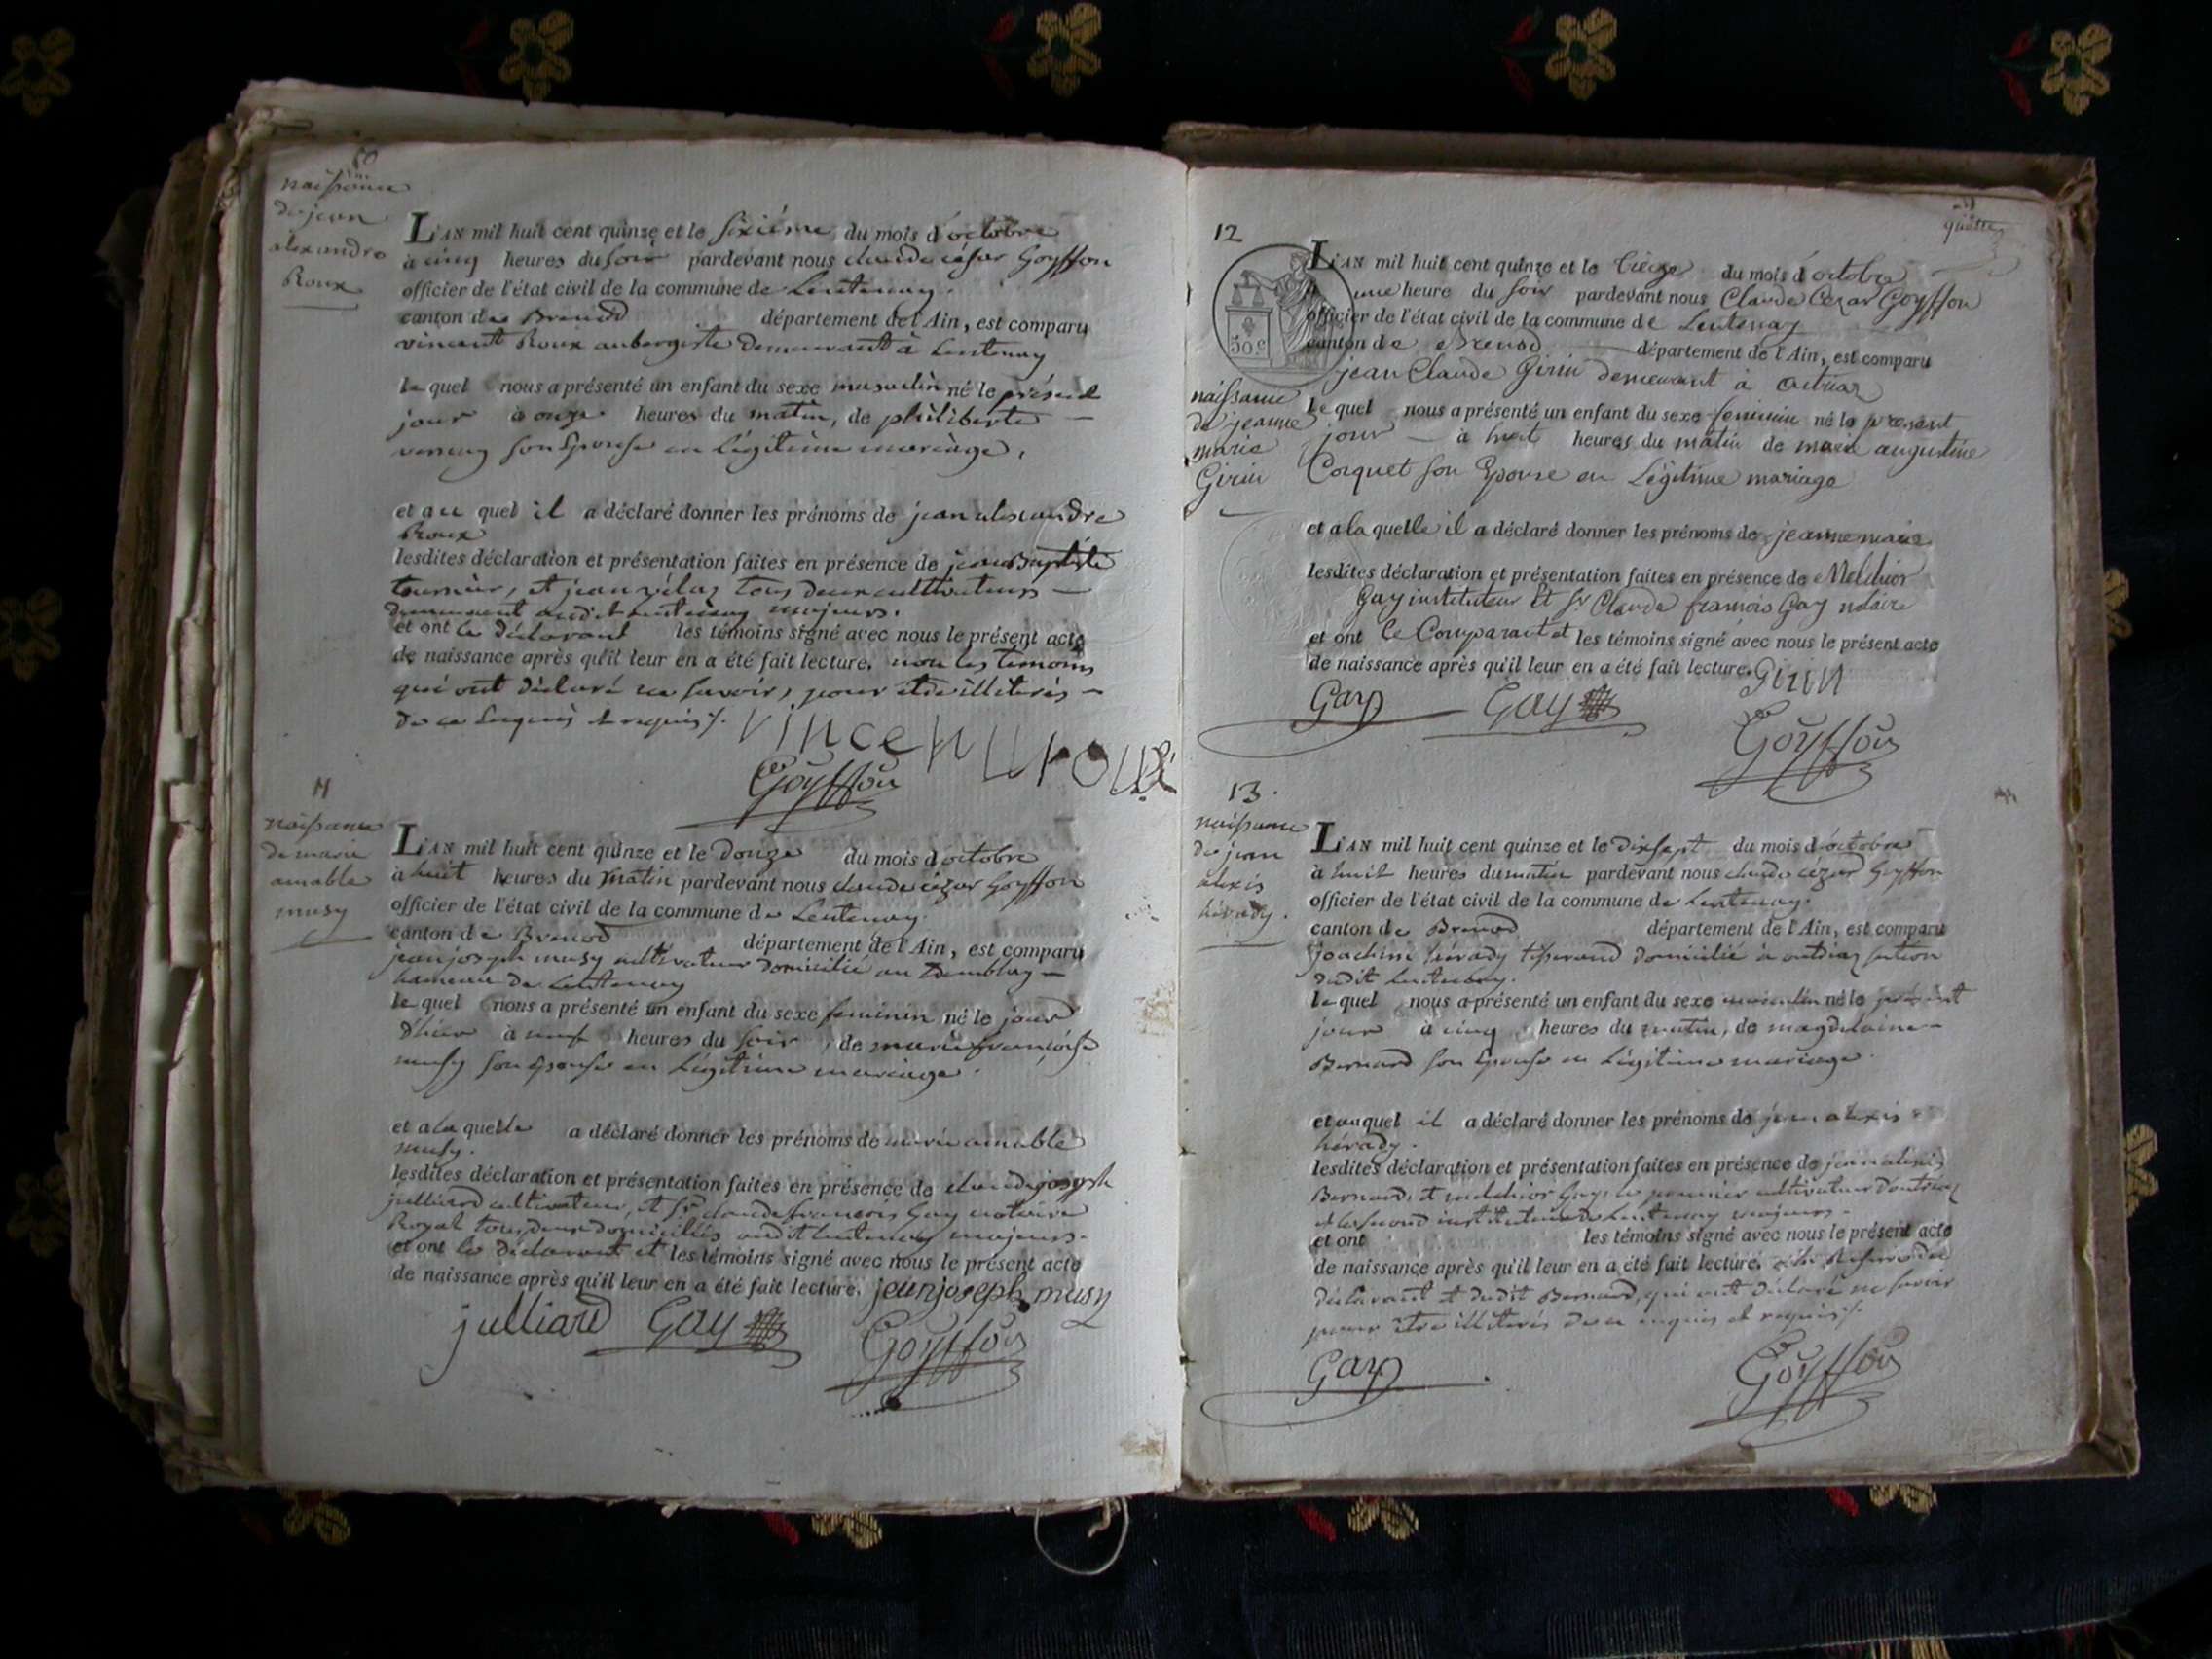 10
naissance
de jean
alexandre
Roux
L'AN mil huit cent quinze et le sixiéme du mois d'octobre
à cinq heures du soir pardevant nous claude césar Goyffon
officier de l'état civil de la commune de Lentenay.
canton de Brenod département de l'Ain, est comparu
vincent Roux aubergiste demeurant à Lentenay
le quel nous a présenté un enfant du sexe masculin né le présent
jour à onze heures du matin, de philiberte
son Epouse en Légitime mariage,
et au quel il a déclaré donner les prénoms de jean alexandre
Roux
lesdites déclaration et présentation faites en présence de jean Baptiste
tournier, et jean vélaz tous deux cultivateurs
demeurant audit Lentenay majeurs.
et ont le déclarant les témoins signé avec nous le présent acte
de naissance après qu'il leur en a été fait lecture. non les témoins
qui ont déclaré ne savoir, pour être illiterés
de ce Enquis et requis ./.
vincent roux
Goyffon
11
naissance
de marie
amable
musy
L'AN mil huit cent quinze et le douze du mois d'octobre
à huit heures du matin pardevant nous claude cézar Goyffon
officier de l'état civil de la commune de Lentenay.
canton de Brenod département de l'Ain, est comparu
jean joseph musy cultivateur domicilié au tremblay
hameau de Lentenay
le quel nous a présenté un enfant du sexe feminin né le jour
d'hier à neuf heures du soir, de marie françoise
musy son épouse en Légitime mariage.
et a la quelle a déclaré donner les prénoms de marie amable
musy.
lesdites déclaration et présentation faites en présence de claude joseph
julliard cultivateur, et Sr. claude françois Gay notaire
Royal tous deux domiciliés audit Lentenay majeurs.
et ont le déclarant et les témoins signé avec nous le présent acte
de naissance après qu'il leur en a été fait lecture. jean joseph musy
julliard Gay Goyffon
12
30 c
naissance
de jeanne
marie
Girin
L'AN mil huit cent quinze et le treize du mois d'octobre
une heure du soir pardevant nous Claude Cezar Goyffon
officier de l'état civil de la commune de Lentenay
canton de Brenod département de l'Ain, est comparu
jean Claude Girin demeurant à outriaz
le quel nous a présenté un enfant du sexe feminin né le present
jour à huit heures du matin de marie augustine
Coquet son Epouse en Légitime mariage
et a la quelle il a déclaré donner les prénoms de jeanne marie
lesdites déclaration et présentation faites en présence de Melchior
Gay instituteur Et Sr. Claude françois Gay notaire
et ont le Comparant et les témoins signé avec nous le présent acte
de naissance après qu'il leur en a été fait lecture. Girin
Gay Gay
Goyffon
13.
naissance
de jean
alexis
hérady.
L'AN mil huit cent quinze et le dix sept du mois d'octobre
à huit heures du matin pardevant nous claude cézar Goyffon
officier de l'état civil de la commune de Lentenay.
canton de Brenod département de l'Ain, est comparu
joachim hérady tisserand domicilié à outriaz section
dudit Lentenay.
le quel nous a présenté un enfant du sexe masculin né le présent
jour à cinq heures du matin, de magdelaine
Bernard son Epouse en Légitime mariage.
et au quel il a déclaré donner les prénoms de jean alexis
hérady.
lesdites déclaration et présentation faites en présence de jean alexis
Bernard, et melchior Gay, le premier cultivateur d'outriaz
et le second instituteur de Lentenay majeurs.
et ont les témoins signé avec nous le présent acte
de naissance après qu'il leur en a été fait lecture. à la Reserve du
déclarant et dudit Bernard, qui ont déclaré ne savoir
pour être illiterés de ce enquis et requis ./.
Gay Goyffon